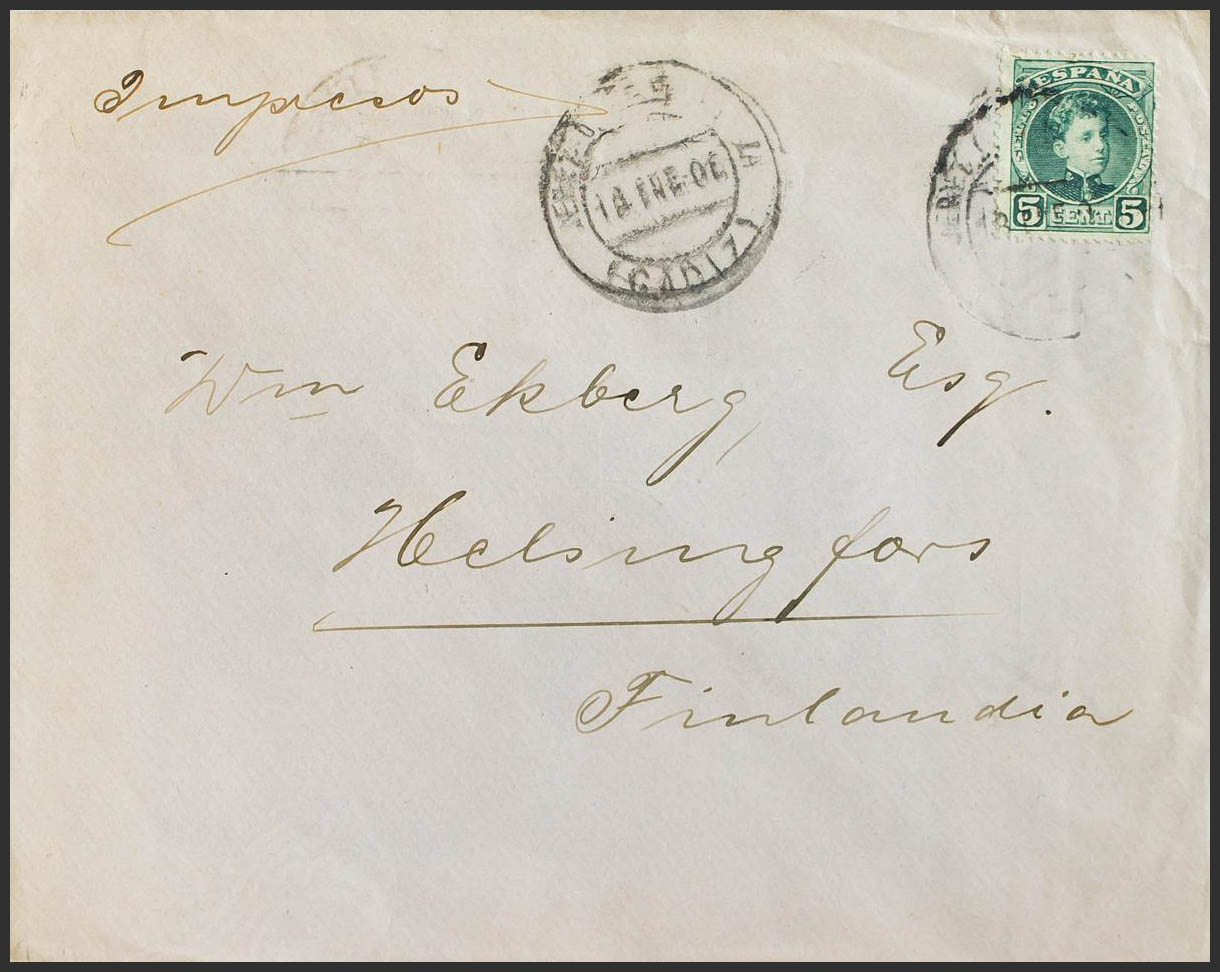 Impresos
ESPAÑA
SELLO POSTAL
5 CENT. 5
18 ENE 06
(CADIZ)
Wm Ekberg, Esq.
Helsingfors
Finlandia